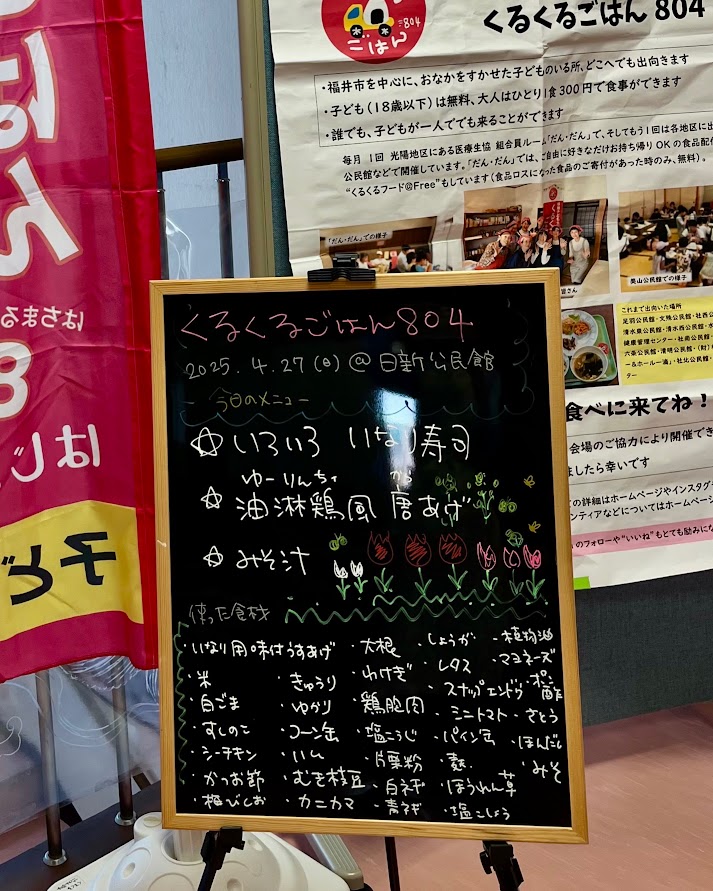 ごはん
804
くるくるごはん 804
・福井市を中心に、おなかをすかせた子どものいる所、どこへでも出向きます
・子ども（18歳以下）は無料、大人はひとり1食300円で食事ができます
・誰でも、子どもが一人ででも来ることができます
毎月 1回 光陽地区にある医療生協 組合員ルーム「だん・だん」で、そしてもう1回は各地区に出
公民館などで開催しています。「だん・だん」では、ご自由に好きなだけお持ち帰りOKの食品配
“くるくるフード@Free”もしています（食品ロスになった食品のご寄付があった時のみ、無料）。
「だん・だん」での様子
皆さん
美山公民館での様子
これまで出向いた場所
足羽公民館・文殊公民館・社西公
清水東公民館・清水西公民館・水
健康管理センター・社南公民館・
六条公民館・清明公民館・（財）
ー&ホール一湊」・社北公民館・
ター
食べに来てね！
会場のご協力により開催でき
ましたら幸いです
の詳細はホームページやインスタグ
ンティアなどについてはホームペー
のフォローや“いいね”もとても励みにな
はん
はさまる
8
はじ
子ど
くるくるごはん804
2025.4.27(日)@日新公民館
－今日のメニュー－
☆いろいろ いなり寿司
ゆーりんちー から
☆油淋鶏風 唐あげ
☆みそ汁
使った食材
・いなり用味付うすあげ
・米
・白ごま
・すしのこ
・シーチキン
・かつお節
・梅びしお
・きゅうり
・ゆかり
・コーン缶
・ハム
・むき枝豆
・カニカマ
・大根
・わけぎ
・鶏胸肉
・塩こうじ
・片栗粉
・白ネギ
・青ネギ
・しょうが
・レタス
・スナップエンドウ
・ミニトマト
・パイン缶
・麩
・ほうれん草
・塩こしょう
・植物油
・マヨネーズ
・ポン酢
・さとう
・ほんだし
・みそ